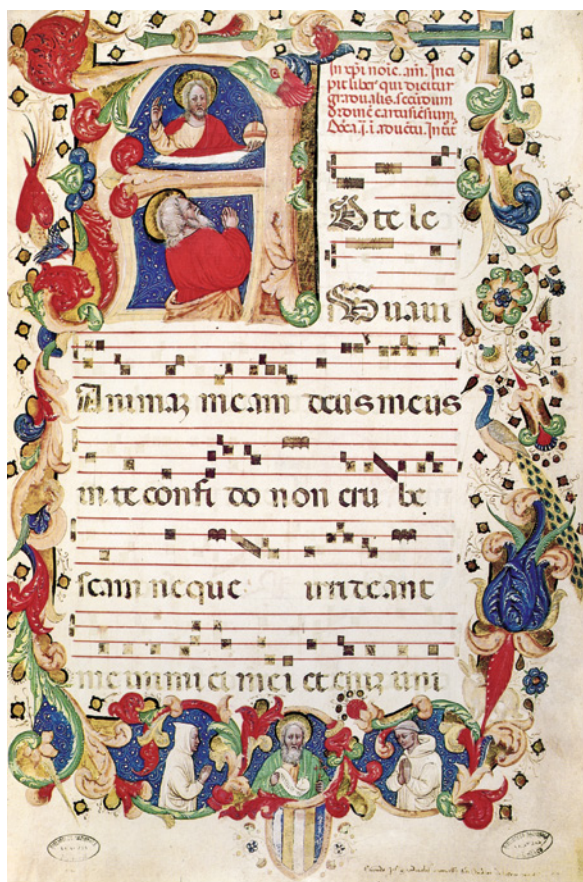 In xpi noie. am. Inci
pit liber qui dicitur
gradualis. secundum
ordinem cartusiensium.
Dnica .j. i aduentu. Introit
A
D te le
Uaui
Animaz meam deus meus
in te confi do non eru be
scam neque irrideant
me inimi ci mei et eniz uni